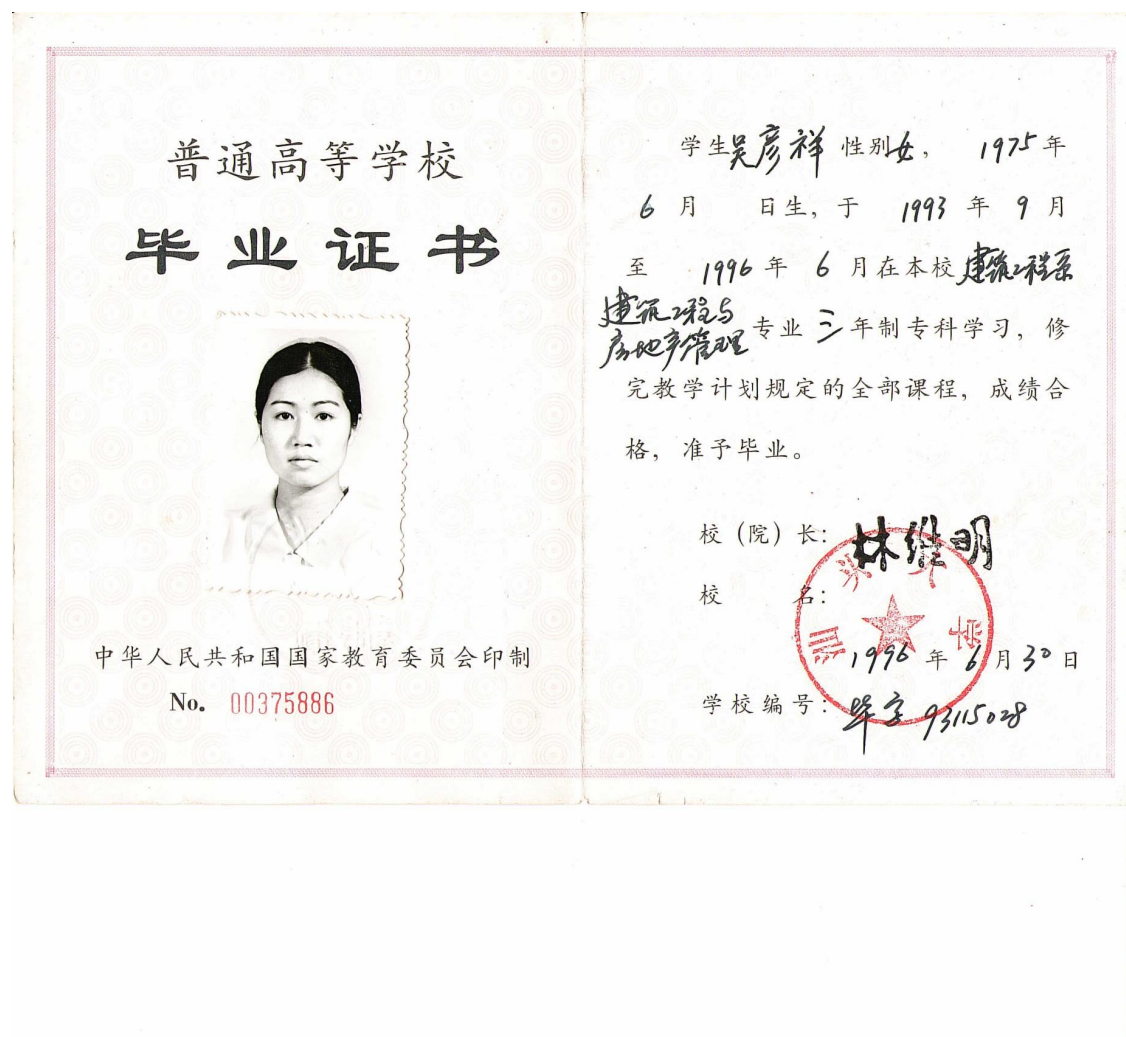 普通高等学校
毕业证书
中华人民共和国国家教育委员会印制
No. 00375886
学生吴彦祥性别女， 1975年
6月 日生，于 1993年9月
至 1996年6月在本校建筑工程系
建筑工程与
房地产管理专业三年制专科学习，修
完教学计划规定的全部课程，成绩合
格，准予毕业。
校（院）长：林维明
校 名：
汕头大学
1996年6月30日
学校编号：毕字93115028